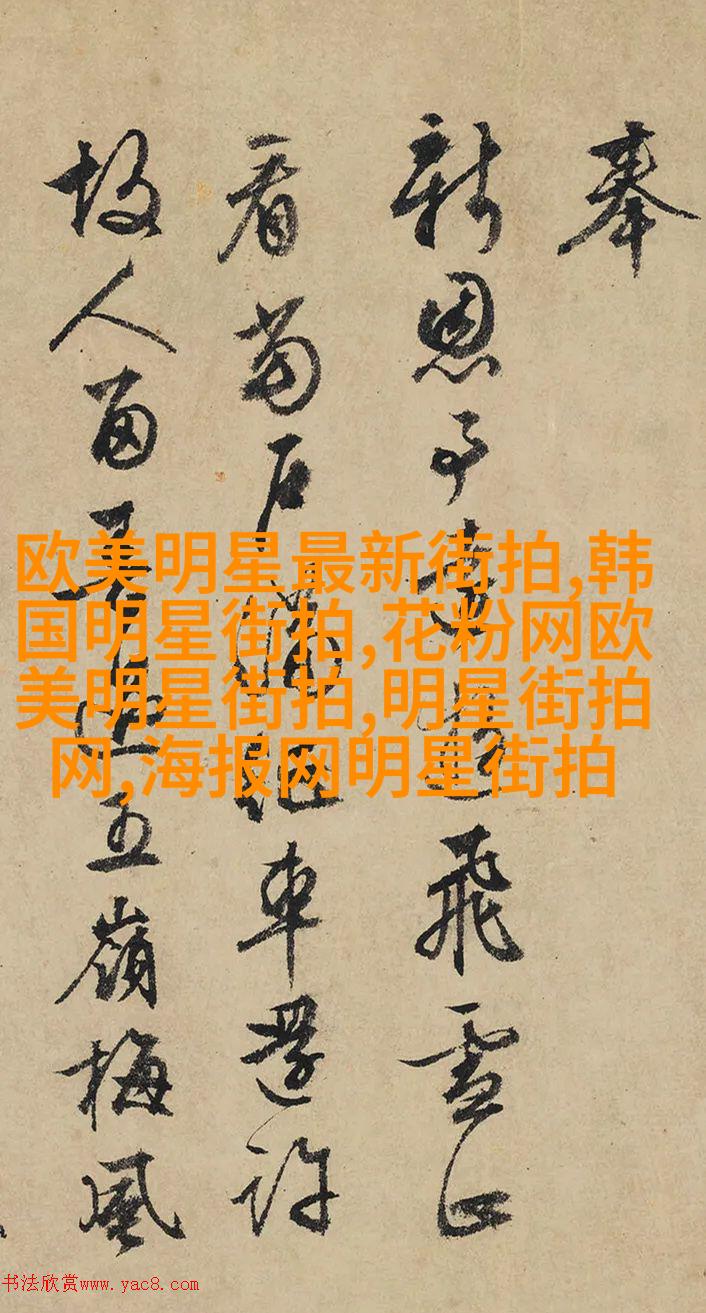 奉
新恩飛雪正
看車還許
故人五嶺梅風
欧美明星最新街拍,韩
国明星街拍,花粉网欧
美明星街拍,明星街拍
网,海报网明星街拍
书法欣赏www.yac8.com